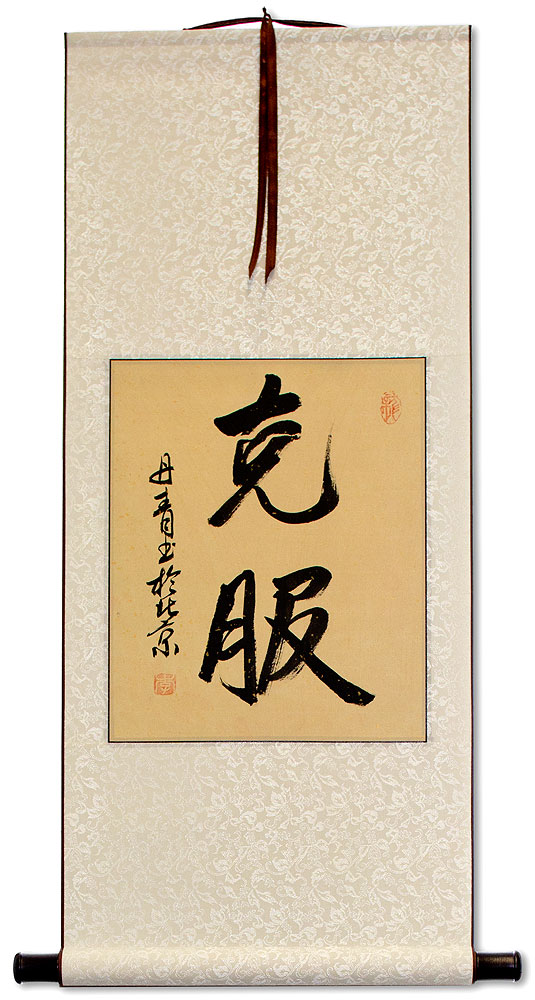 克服
丹青书於北京